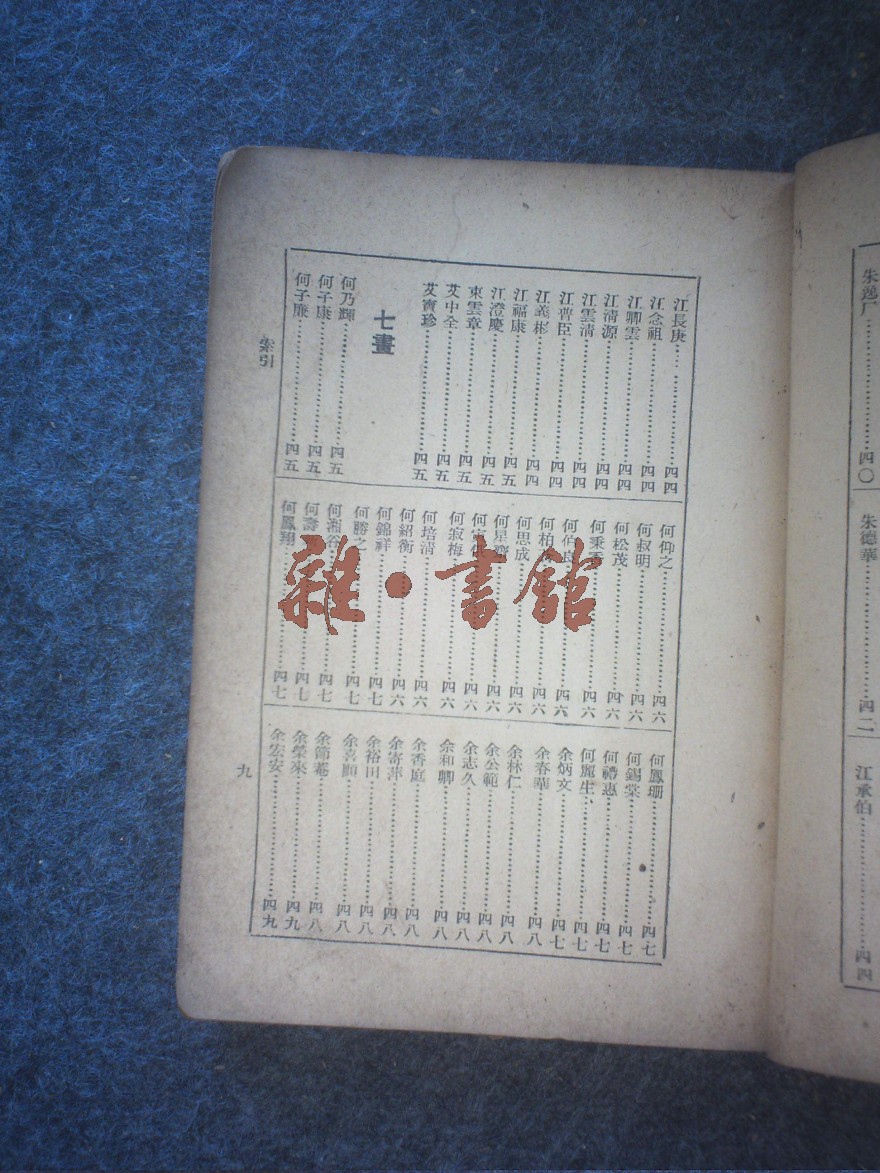 江長庚⋯⋯四四
江念祖⋯⋯四四
江卿雲⋯⋯四四
江清源⋯⋯四四
江雲清⋯⋯四四
江普臣⋯⋯四四
江義彬⋯⋯四四
江福康⋯⋯四五
江澄慶⋯⋯四五
束雲章⋯⋯四五
艾中全⋯⋯四五
艾寶珍⋯⋯四五
七畫
何乃輝⋯⋯四五
何子康⋯⋯四五
何子廉⋯⋯四五
何仰之⋯⋯四六
何叔明⋯⋯四六
何松茂⋯⋯四六
何秉⋯⋯四六
何⋯⋯四六
何柏⋯⋯四六
何思成⋯⋯四六
何星⋯⋯四六
何⋯⋯四六
何寂梅⋯⋯四六
何培清⋯⋯四六
何紹衡⋯⋯四六
何錦祥⋯⋯四七
何勝之⋯⋯四七
何湘谷⋯⋯四七
何壽⋯⋯四七
何鳳翔⋯⋯四七
何鳳珊⋯⋯四七
何錫棠⋯⋯四七
何禮惠⋯⋯四七
何麗生⋯⋯四七
余炳文⋯⋯四七
余春華⋯⋯四八
余林仁⋯⋯四八
余公範⋯⋯四八
余志久⋯⋯四八
余和卿⋯⋯四八
余香庭⋯⋯四八
余寄萍⋯⋯四八
余裕田⋯⋯四八
余喜順⋯⋯四八
余節菴⋯⋯四八
余榮來⋯⋯四九
余宏安⋯⋯四九
索引
九
雜·書館
朱逸厂⋯⋯四〇
朱德華⋯⋯四二
江承伯⋯⋯四四